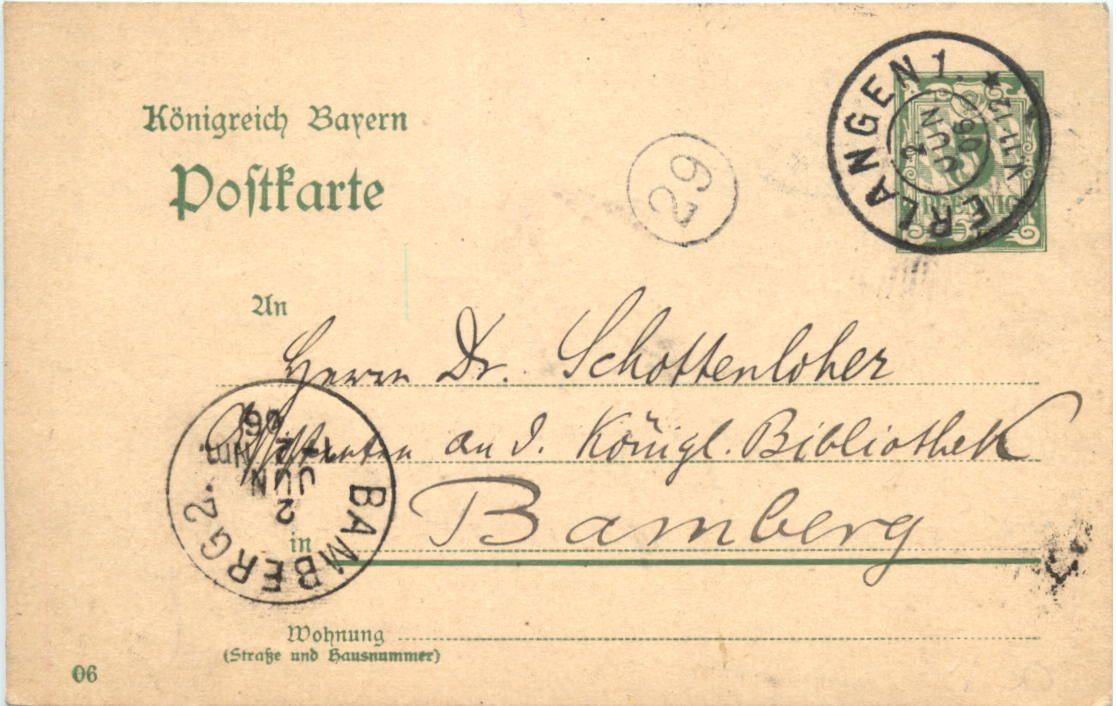 Königreich Bayern
Postkarte
ERLANGEN 1.
2
JUN
06
V.11-12
5
PFENNIG
29
An
Herrn Dr. Schottenloher
Assistenten an d. Königl. Bibliothek
in Bamberg
BAMBERG 2.
2
JUN
06
Wohnung
(Straße und Hausnummer)
06